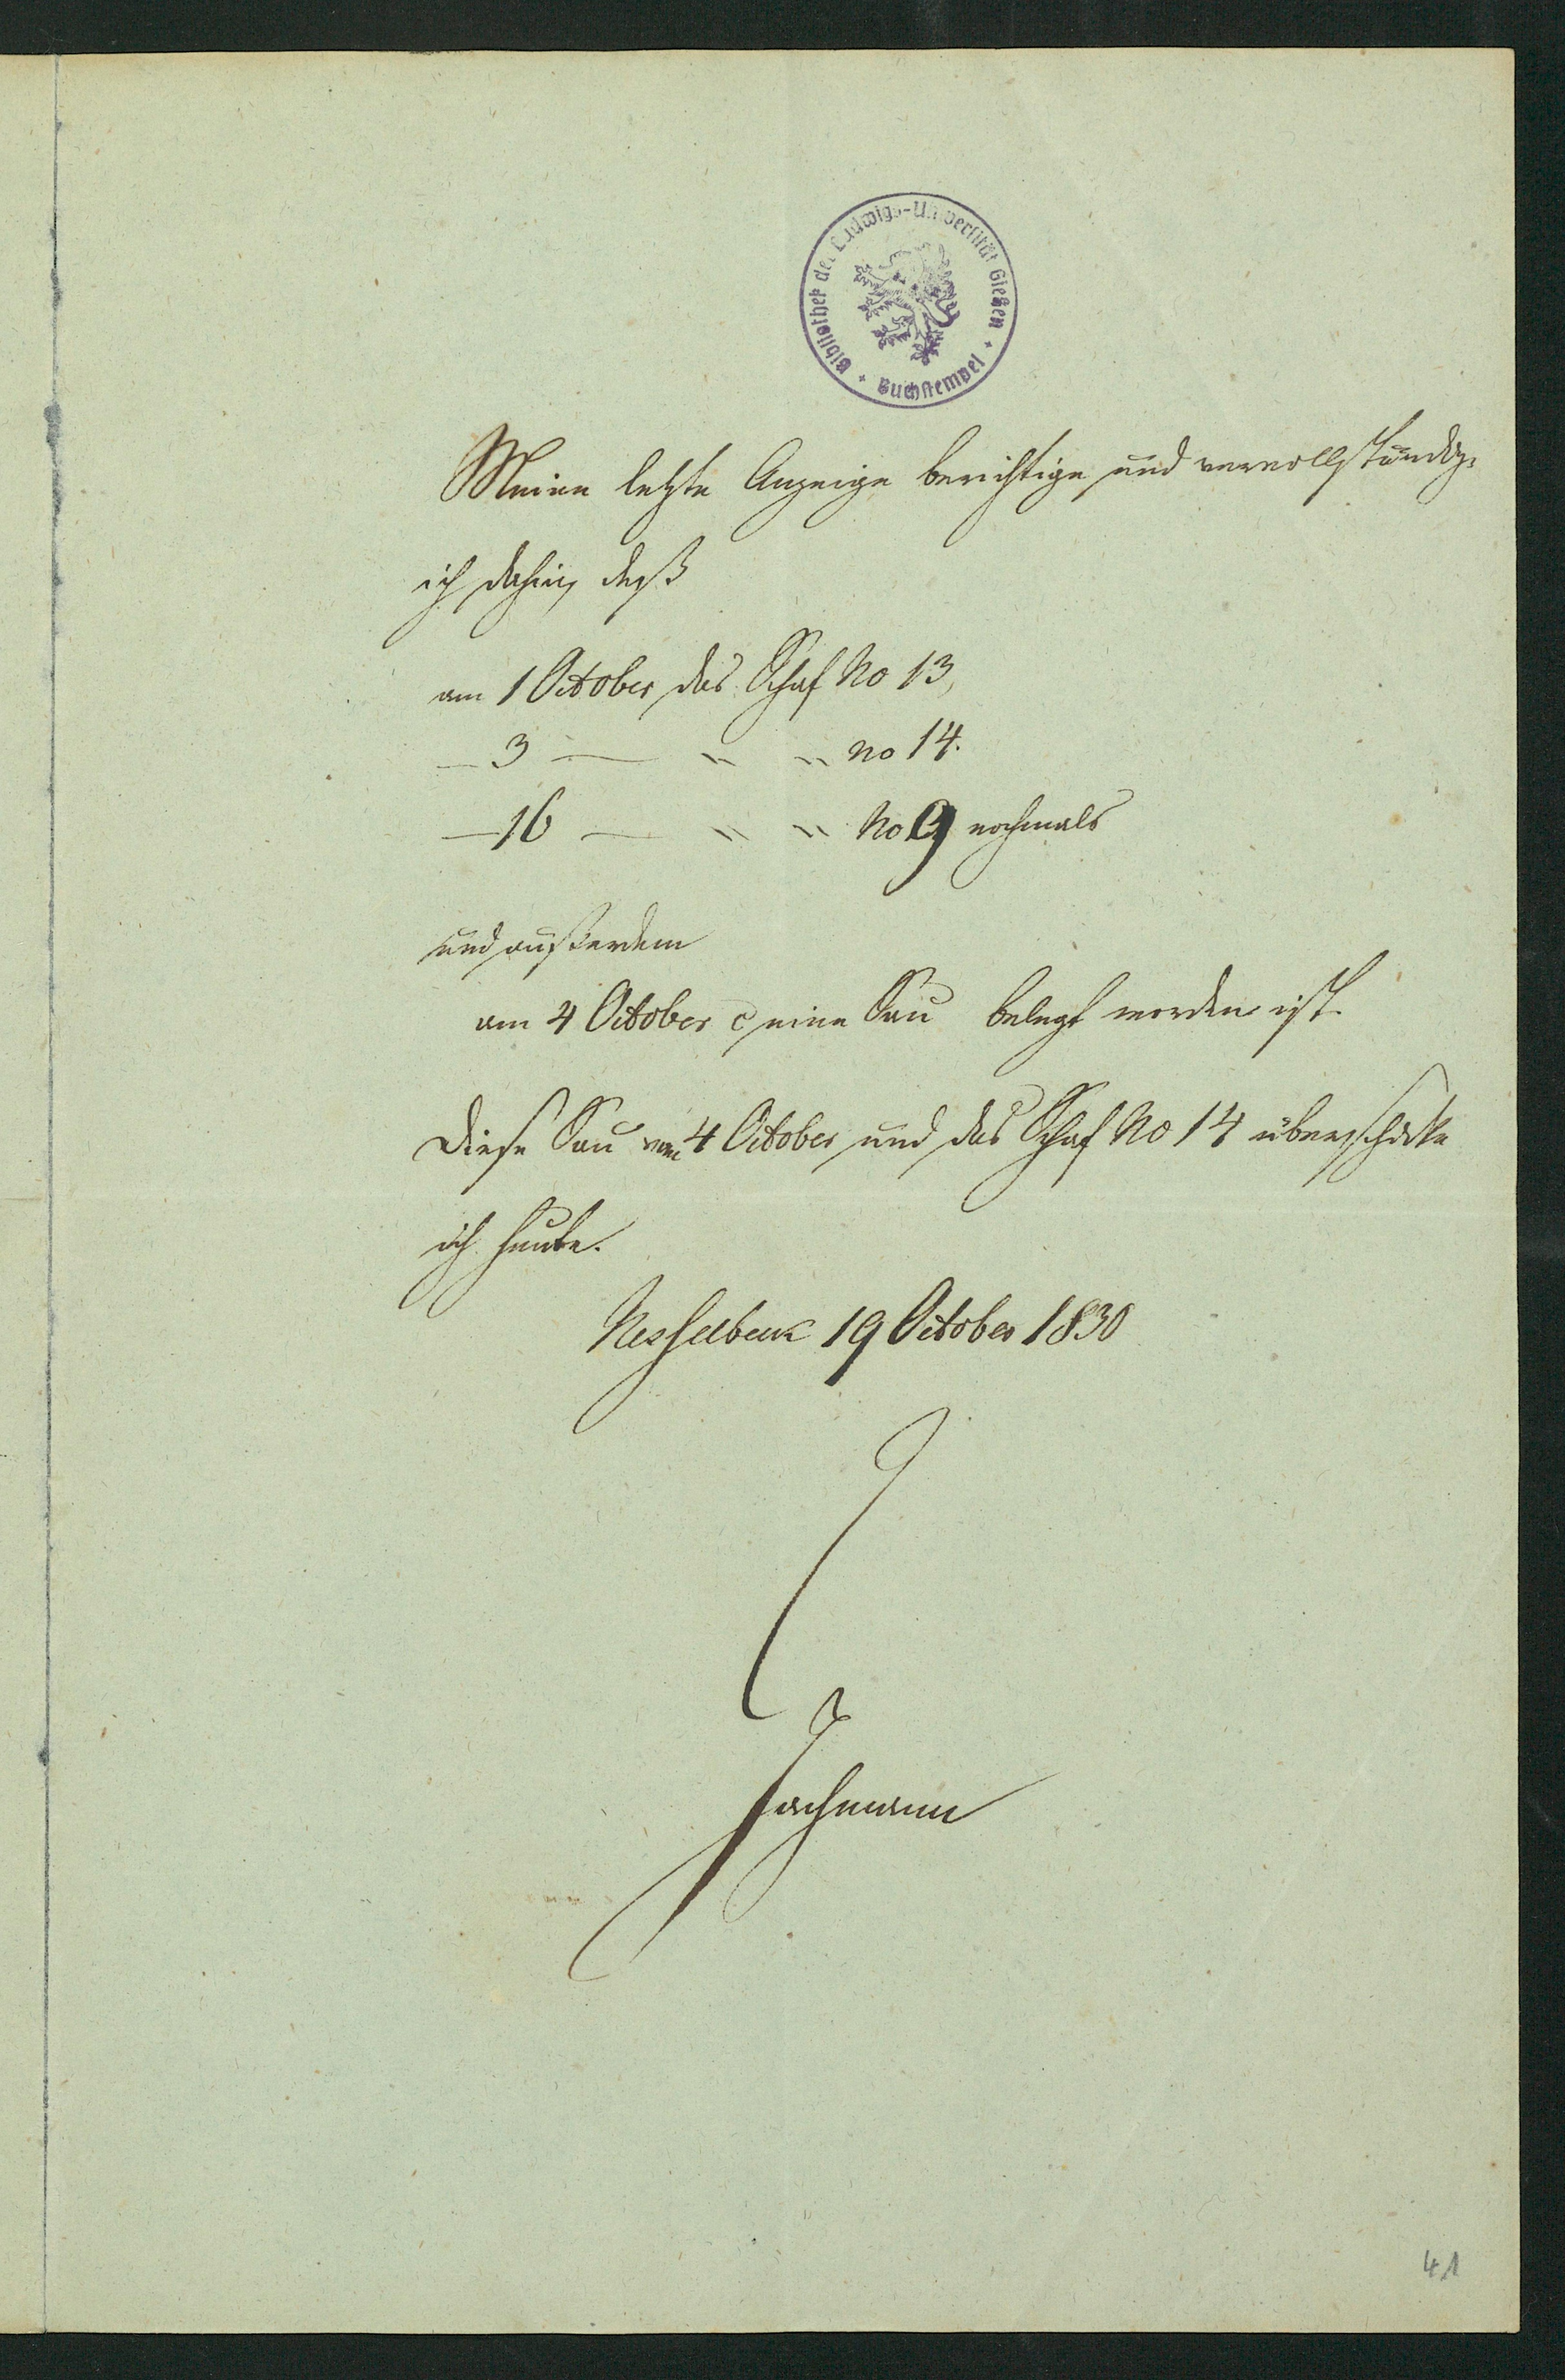 Bibliothek der Ludwigs-Universität Gießen + Buchstempel +
Meine letzte Anzeige berichtige und vervollständige
ich dahin, daß
am 1 October das Schaf No 13,
— 3 — " " no 14.
— 16 — " " No 9 nochmals
und außerdem
am 4 October c eine Sau belegt worden ist.
Diese Sau vom 4 October und das Schaf No 14 überschicke
ich heute.
Nesselbeck 19 October 1830
Jachmann
41